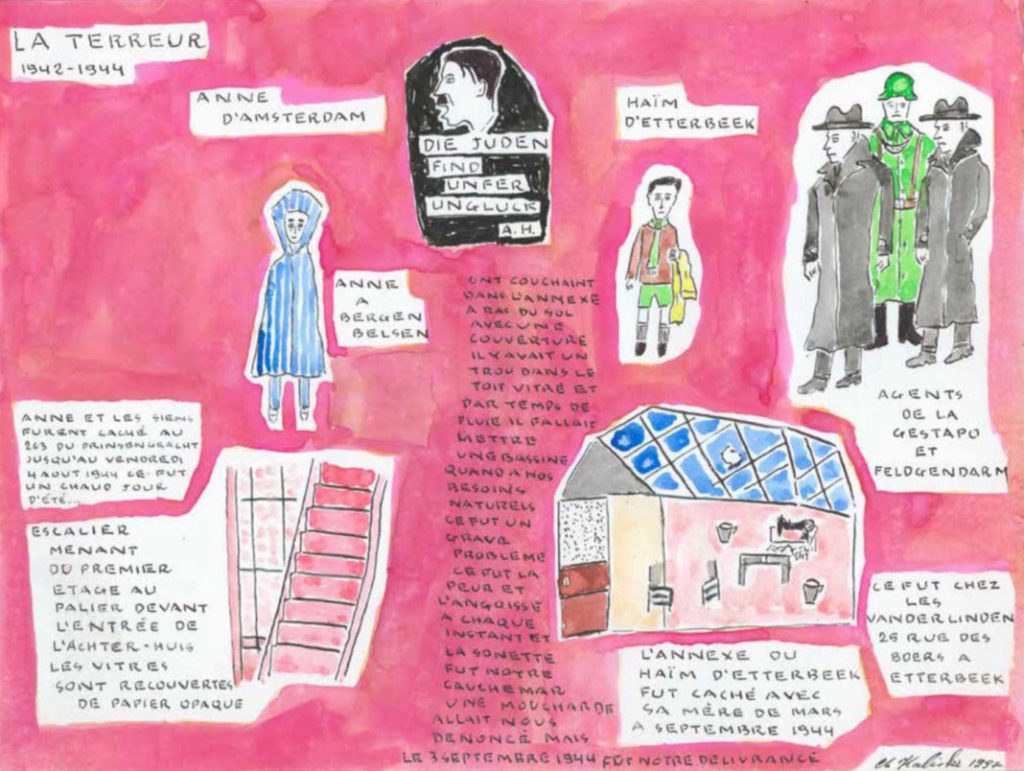 LA TERREUR
1942-1944
ANNE
D'AMSTERDAM
DIE JUDEN
FIND
UNFER
UNGLUCK
A.H.
HAÏM
D'ETTERBEEK
ANNE
A
BERGEN
BELSEN
AGENTS
DE LA
GESTAPO
ET
FELDGENDARM
ANNE ET LES SIENS
FURENT CACHÉ AU
263 DU PRINSENGRACHT
JUSQU'AU VENDREDI
4 AOUT 1944 CE FUT
UN CHAUD JOUR
D'ÉTÉ...
ESCALIER
MENANT
DU PREMIER
ETAGE AU
PALIER DEVANT
L'ENTRÉE DE
L'ÄCHTER-HUIS
LES VITRES
SONT RECOUVERTES
DE PAPIER OPAQUE
ONT COUCHAINT
DANS L'ANNEXE
A RAS DU SOL
AVEC UNE
COUVERTURE
IL Y AVAIT UN
TROU DANS LE
TOIT VITRÉ ET
PAR TEMPS DE
PLUIE IL FALLAIT
METTRE
UNE BASSINE
QUAND A NOS
BESOINS
NATURELS
CE FUT UN
GRAVE
PROBLEME
CE FUT LA
PEUR ET
L'ANGOISSE
A CHAQUE
INSTANT ET
LA SONETTE
FUT NOTRE
CAUCHEMAR
UNE MOUCHARDE
ALLAIT NOUS
DENONCÉ MAIS
LE 3 SEPTEMBRE 1944 FUT NOTRE DELIVRANCE
L'ANNEXE OU
HAÏM D'ETTERBEEK
FUT CACHÉ AVEC
SA MÈRE DE MARS
A SEPTEMBRE 1944
CE FUT CHEZ
LES
VANDERLINDEN
25 RUE DES
BOERS A
ETTERBEEK
1997